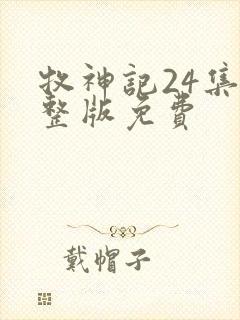 牧神記24集
整版免費
戴帽子